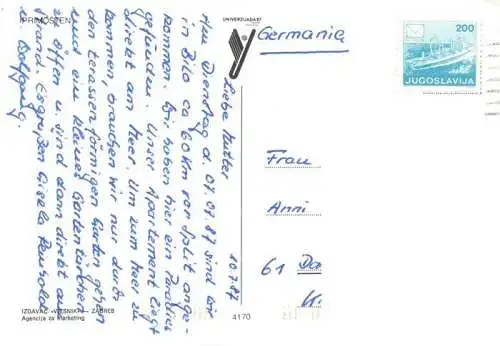 PRIMOŠTEN
UNIVERZIJADA '87
Germania
200
JUGOSLAVIJA
10.7.87
Liebe Mutter
Am Dienstag d. 07.07.87 sind wir
in Bilo ca 60 Km vor Split ange-
kommen. Wir haben hier ein Paradies
gefunden. Unser Apartement liegt
direkt am Meer. Um zum Meer zu
kommen, brauchen wir nur durch
den terassenförmigen Garten gehen
und ein kleines Gartentürchen
zu öffnen u. sind dann direkt am
Strand. Es grüßen Gisela
u. Wolfgang.
Frau
Anni
61 Da
IZDAVAČ »VJESNIK« – ZAGREB
Agencija za Marketing
4170